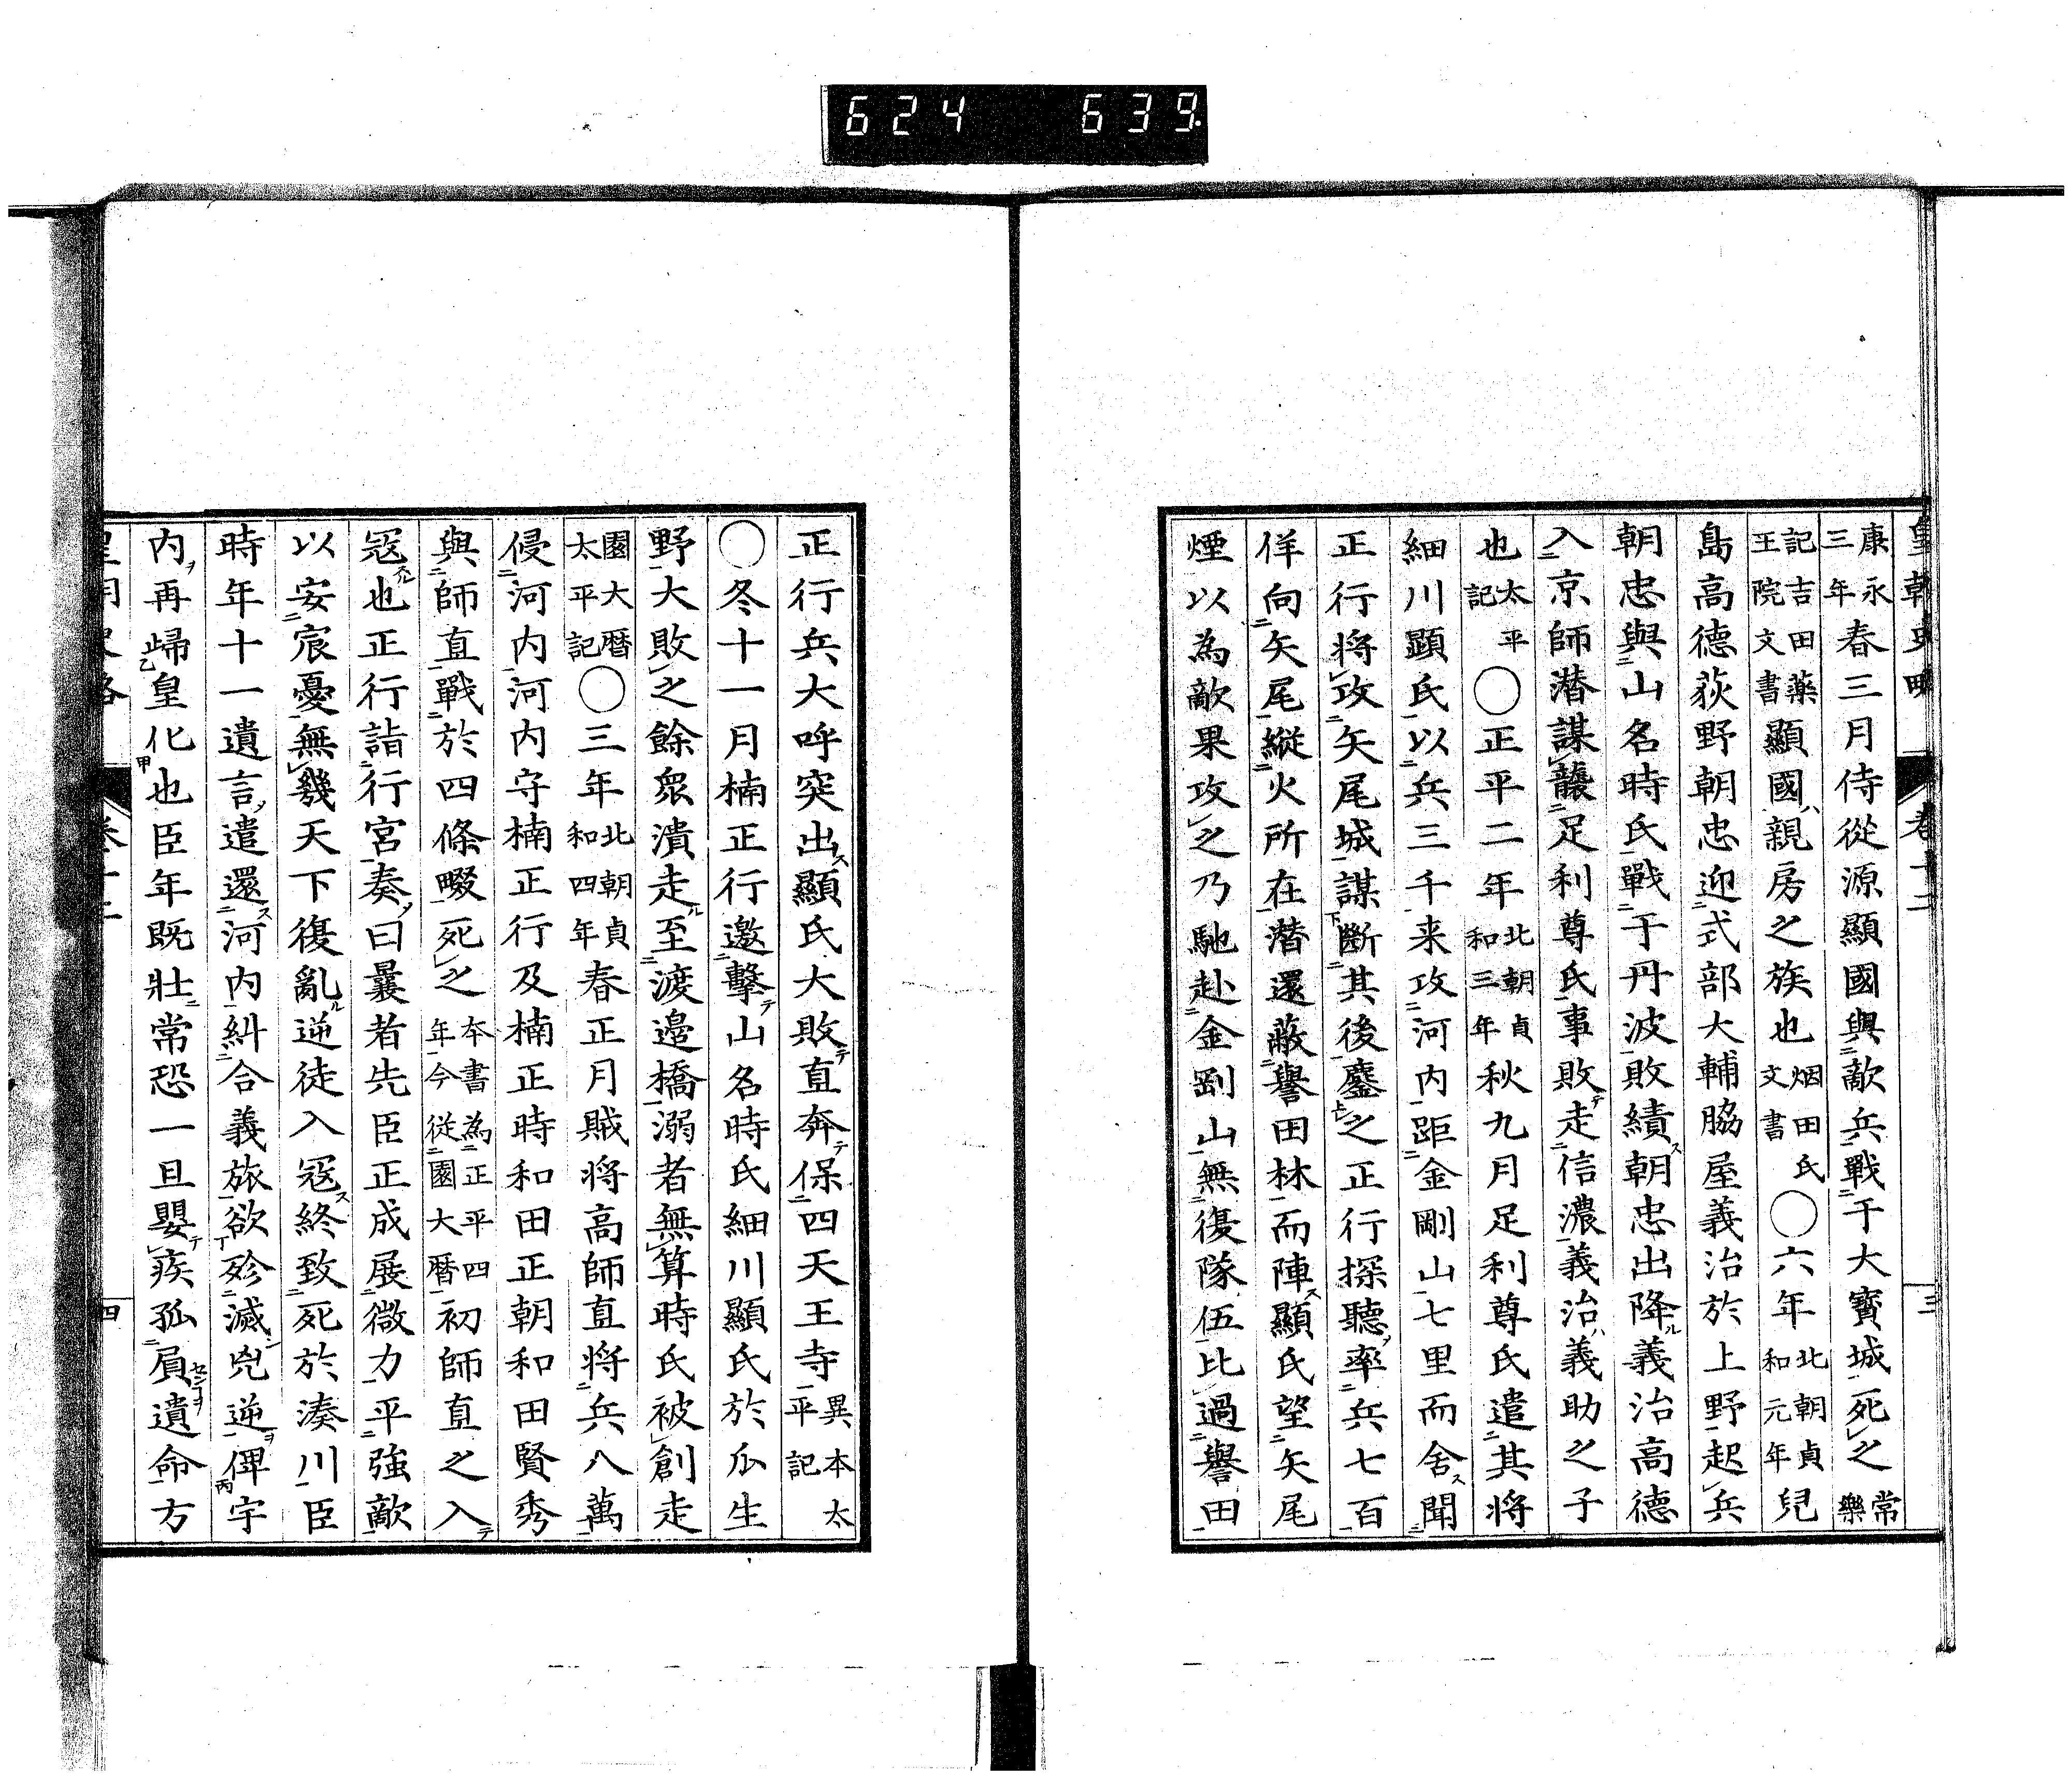 624 639
皇朝史略 卷十二 三
康永三年春三月侍從源顯國與敵兵戰于大寶城死之常樂
記吉田薬王院文書顯國親房之族也烟田氏文書〇六年北朝貞和元年兒
島高德荻野朝忠迎式部大輔脇屋義治於上野起兵
朝忠與山名時氏戰于丹波敗績朝忠出降義治高德
入京師潜謀襲足利尊氏事敗走信濃義治義助之子
也太平記〇正平二年北朝貞和三年秋九月足利尊氏遣其将
細川顕氏以兵三千来攻河内距金剛山七里而舍聞
正行将攻矢尾城謀斷其後鏖之正行探聽率兵七百
佯向矢尾縦火所在潜還蔽譽田林而陣顯氏望矢尾
煙以為敵果攻之乃馳赴金剛山無復隊伍比過譽田
正行兵大呼突出顯氏大敗直奔保四天王寺異本太平記
〇冬十一月楠正行邀擊山名時氏細川顯氏於瓜生
野大敗之餘衆潰走至渡邉橋溺者無算時氏被創走
園大暦太平記〇三年北朝貞和四年春正月賊将高師直将兵八萬
侵河内河内守楠正行及楠正時和田正朝和田賢秀
與師直戰於四條畷死之本書為正平四年今従園大暦初師直之入
寇也正行詣行宮奏曰曩者先臣正成展微力平強敵
以安宸憂無幾天下復亂逆徒入寇終致死於湊川臣
時年十一遺言遣還河内糾合義旅欲殄滅兇逆俾宇
内再歸皇化也臣年既壯常恐一旦嬰疾孤屓遺命方
卷十二 四